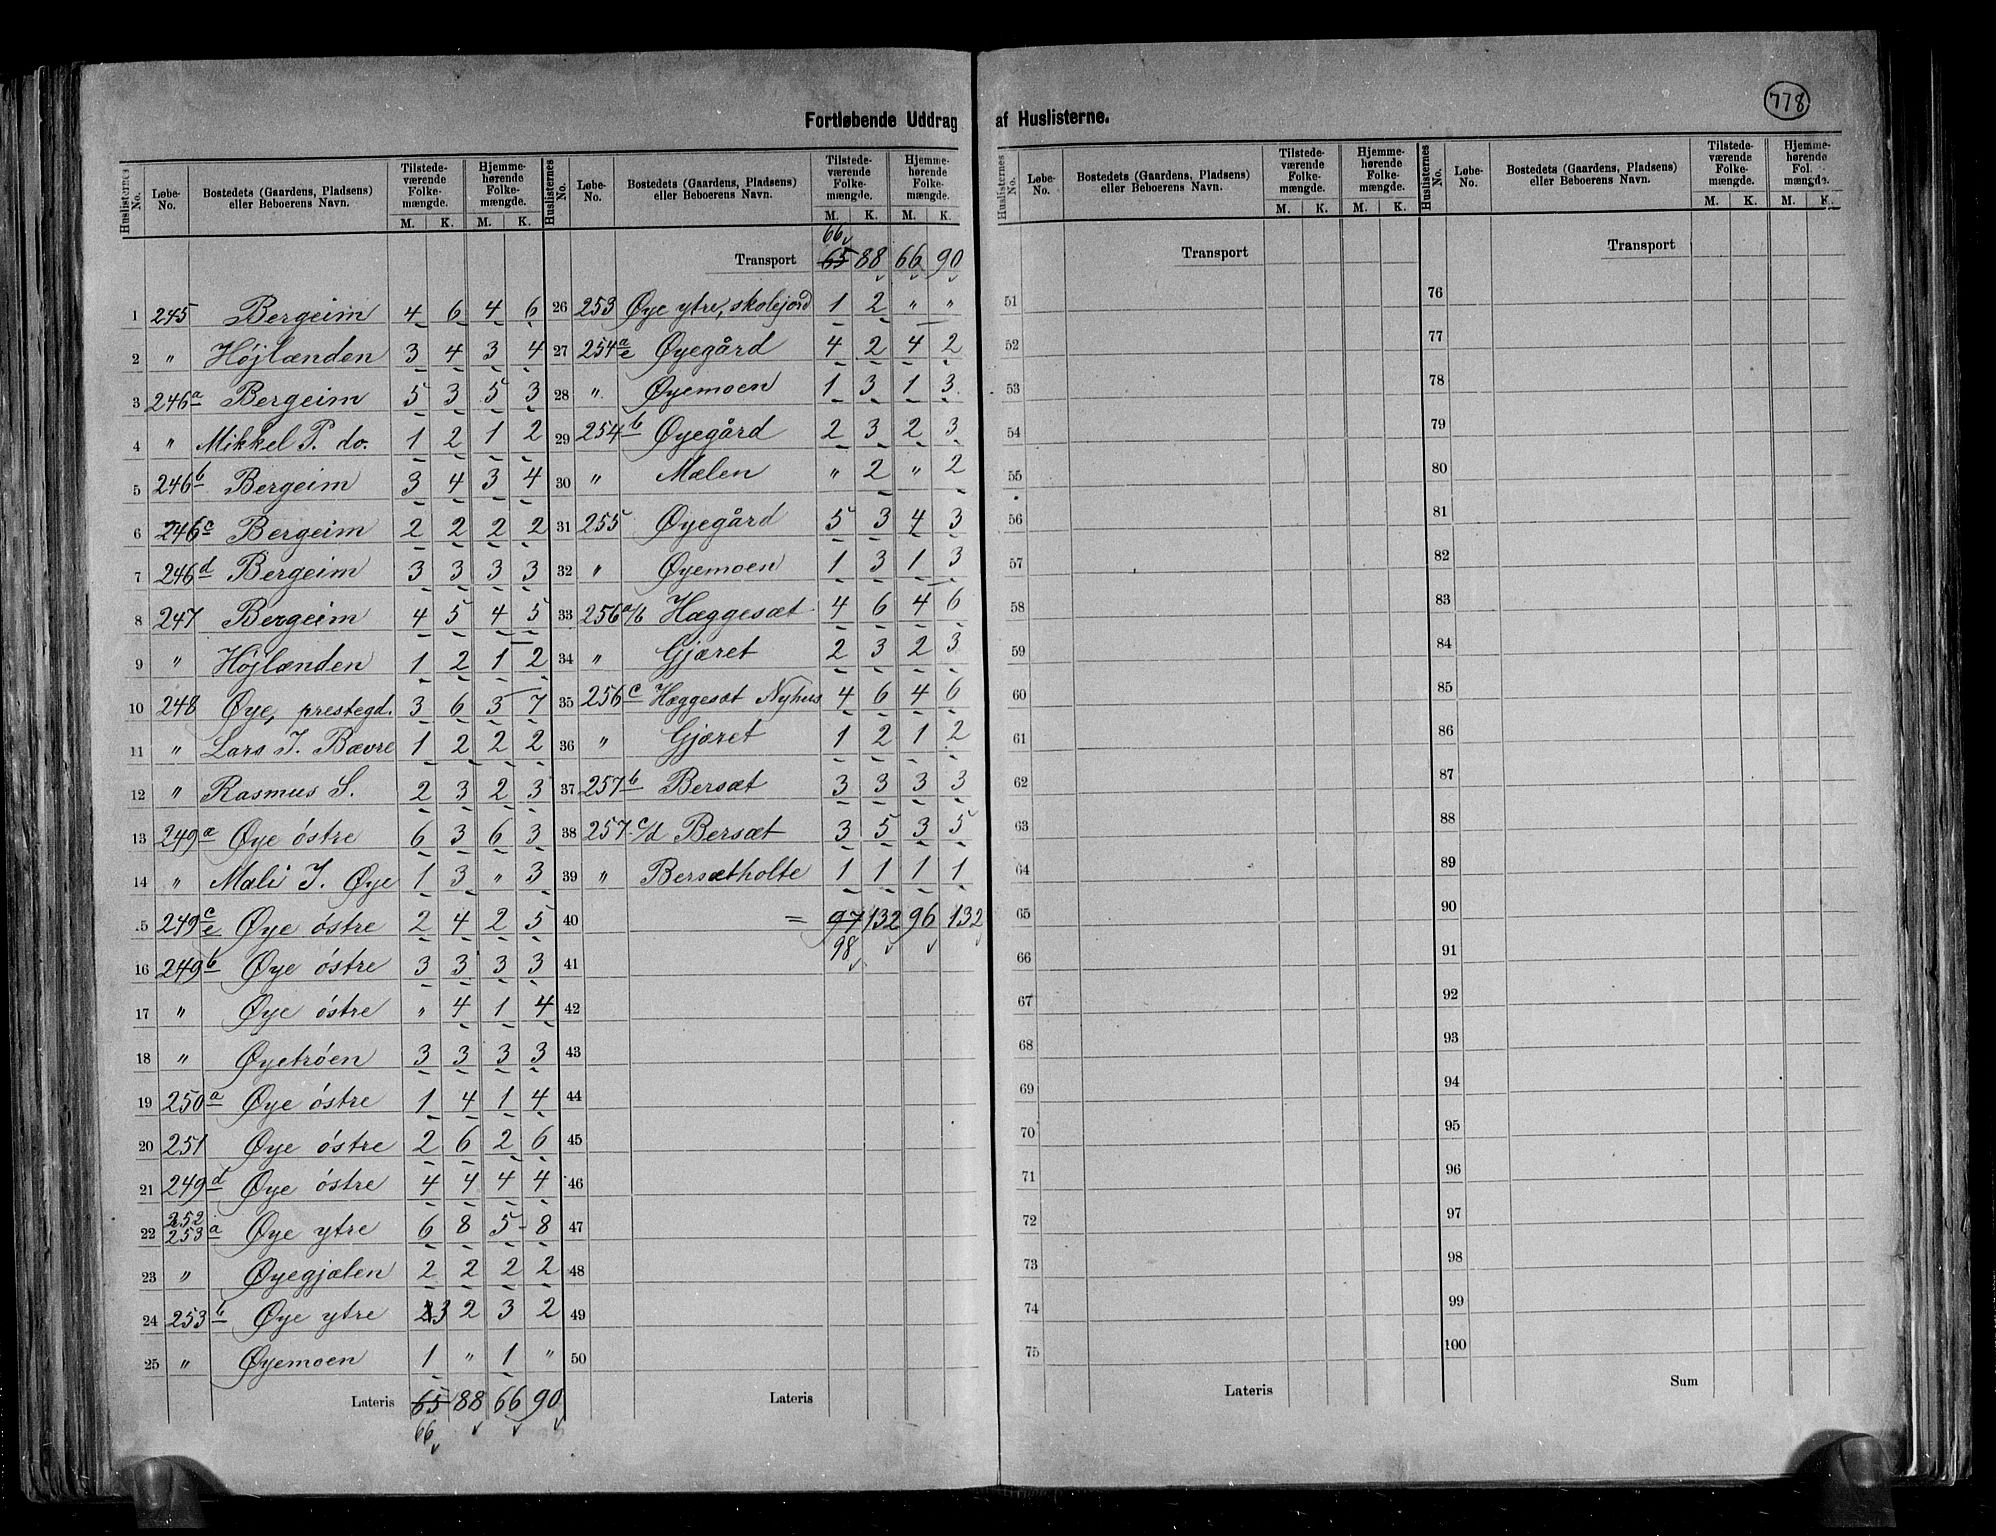 778
Fortløbende Uddrag af Huslisterne.
Huslisternes No. | Løbe-No. | Bostedets (Gaardens, Pladsens) eller Beboerens Navn. | Tilstede-værende Folke-mængde. M. K. | Hjemme-hørende Folke-mængde. M. K.
1 245 Bergeim 4 6 4 6
2 " Højlænden 3 4 3 4
3 246a Bergeim 5 3 5 3
4 " Mikkel P. do. 1 2 1 2
5 246b Bergeim 3 4 3 4
6 246c Bergeim 2 2 2 2
7 246d Bergeim 3 3 3 3
8 247 Bergeim 4 5 4 5
9 " Højlænden 1 2 1 2
10 248 Øye, prestegd. 3 6 3 7
11 " Lars J. Bævre 1 2 2 2
12 " Rasmus S. 2 3 2 3
13 249a Øye östre 6 3 6 3
14 " Mali J. Øye 1 3 " 3
15 249c/e Øye östre 2 4 2 5
16 249b Øye östre 3 3 3 3
17 " Øye östre " 4 1 4
18 " Øyetröen 3 3 3 3
19 250a Øye östre 1 4 1 4
20 251 Øye östre 2 6 2 6
21 249d Øye östre 4 4 4 4
22 252 253a Øye ytre 6 8 5 8
23 " Øyegjælen 2 2 2 2
24 253b Øye ytre 3 2 3 2
25 " Øyemoen 1 " 1 "
Lateris 65 88 66 90
66
Huslisternes No. | Løbe-No. | Bostedets (Gaardens, Pladsens) eller Beboerens Navn. | Tilstede-værende Folke-mængde. M. K. | Hjemme-hørende Folke-mængde. M. K.
66
Transport 65 88 66 90
26 253 Øye ytre, skolejord 1 2 " "
27 254a/e Øyegård 4 2 4 2
28 " Øyemoen 1 3 1 3
29 254b Øyegård 2 3 2 3
30 " Mælen " 2 " 2
31 255 Øyegård 5 3 4 3
32 " Øyemoen 1 3 1 3
33 256a/b Hæggesæt 4 6 4 6
34 " Gjæret 2 3 2 3
35 256c Hæggesæt Nyhus 4 6 4 6
36 " Gjæret 1 2 1 2
37 257b Bersæt 3 3 3 3
38 257c/d Bersæt 3 5 3 5
39 " Bersætholte 1 1 1 1
40 = 97 132 96 132
98
41
42
43
44
45
46
47
48
49
50
Lateris
Huslisternes No. | Løbe-No. | Bostedets (Gaardens, Pladsens) eller Beboerens Navn. | Tilstede-værende Folke-mængde. M. K. | Hjemme-hørende Folke-mængde. M. K.
Transport
51
52
53
54
55
56
57
58
59
60
61
62
63
64
65
66
67
68
69
70
71
72
73
74
75
Lateris
Huslisternes No. | Løbe-No. | Bostedets (Gaardens, Pladsens) eller Beboerens Navn. | Tilstede-værende Folke-mængde. M. K. | Hjemme-hørende Fol. mængde. M. K.
Transport
76
77
78
79
80
81
82
83
84
85
86
87
88
89
90
91
92
93
94
95
96
97
98
99
100
Sum